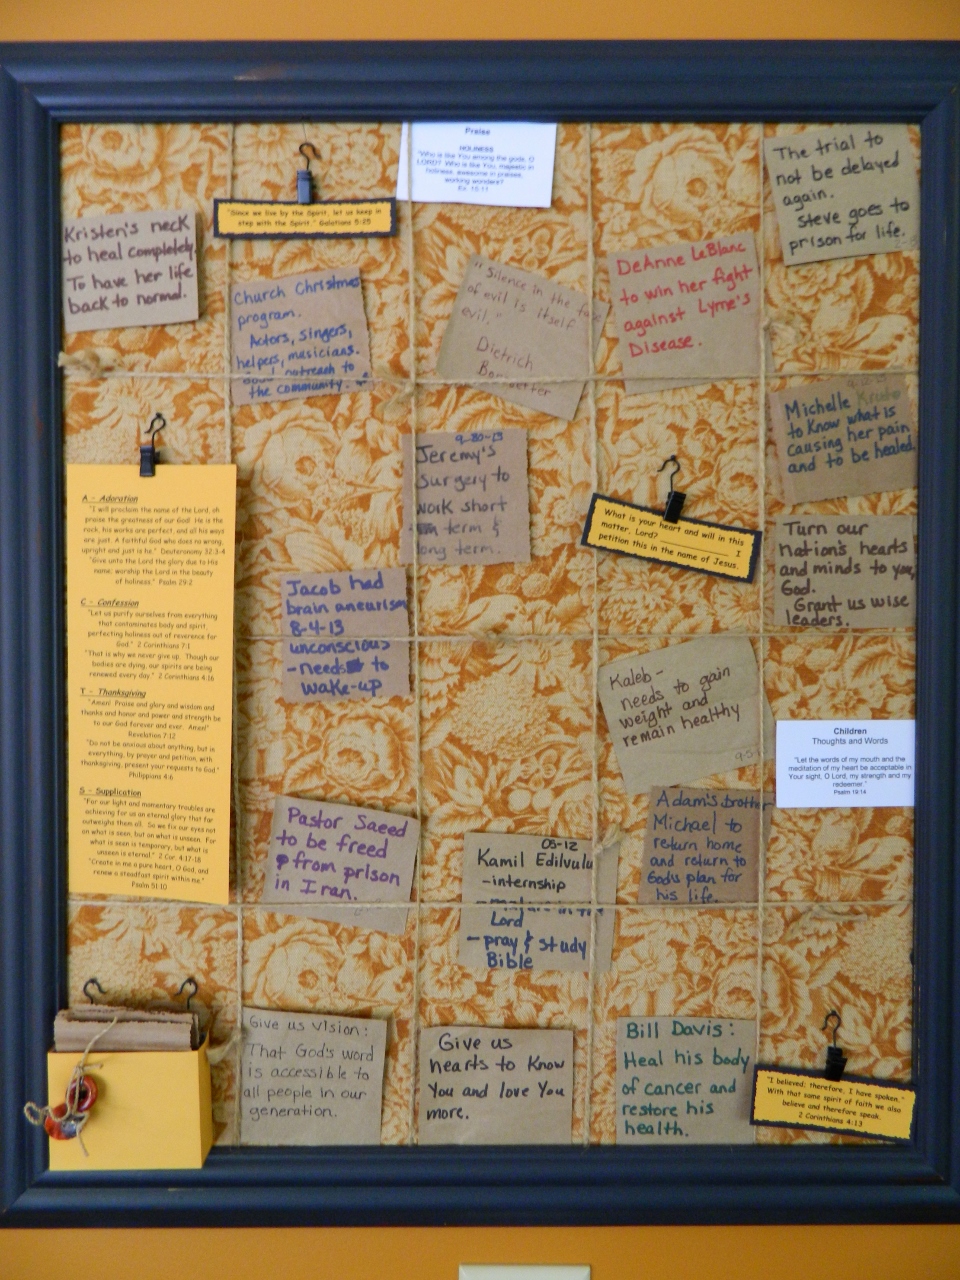 Praise
HOLINESS
"Who is like You among the gods, O
LORD? Who is like You, majestic in
holiness, awesome in praises,
working wonders?
Ex. 15:11
The trial to
not be delayed
again.
Steve goes to
prison for life.
"Since we live by the Spirit, let us keep in
step with the Spirit." Galatians 5:25
Kristen's neck
to heal completely.
To have her life
back to normal.
Church Christmas
program.
Actors, singers,
helpers, musicians.
outreach to
the community.
"Silence in the face
of evil is itself
evil."
Dietrich
DeAnne LeBlanc
to win her fight
against Lyme's
Disease.
Michelle
to know what is
causing her pain
and to be healed.
9-30-13
Jeremy's
surgery to
work short
term &
long term.
What is your heart and will in this
matter, Lord? ____________ I
petition this in the name of Jesus.
Turn our
nation's hearts
and minds to you,
God.
Grant us wise
leaders.
A - Adoration
"I will proclaim the name of the Lord, oh
praise the greatness of our God! He is the
rock, his works are perfect, and all his ways
are just. A faithful God who does no wrong,
upright and just is he." Deuteronomy 32:3-4
"Give unto the Lord the glory due to His
name; worship the Lord in the beauty
of holiness." Psalm 29:2
C - Confession
"Let us purify ourselves from everything
that contaminates body and spirit,
perfecting holiness out of reverence for
God." 2 Corinthians 7:1
"That is why we never give up. Though our
bodies are dying, our spirits are being
renewed every day." 2 Corinthians 4:16
T - Thanksgiving
"Amen! Praise and glory and wisdom and
thanks and honor and power and strength be
to our God forever and ever. Amen!"
Revelation 7:12
"Do not be anxious about anything, but in
everything, by prayer and petition, with
thanksgiving, present your requests to God."
Philippians 4:6
S - Supplication
"For our light and momentary troubles are
achieving for us an eternal glory that far
outweighs them all. So we fix our eyes not
on what is seen, but on what is unseen. For
what is seen is temporary, but what is
unseen is eternal." 2 Cor. 4:17-18
"Create in me a pure heart, O God, and
renew a steadfast spirit within me."
Psalm 51:10
Jacob had
brain aneurism
8-4-13
unconscious
-needs to
wake-up
Kaleb-
needs to gain
weight and
remain healthy
9-5-
Children
Thoughts and Words
"Let the words of my mouth and the
meditation of my heart be acceptable in
Your sight, O Lord, my strength and my
redeemer."
Psalm 19:14
Pastor Saeed
to be freed
from prison
in Iran.
05-12
Kamil Edilvulu
-internship
in the
Lord
-pray & study
Bible
Adam's brother
Michael to
return home
and return to
God's plan for
his life.
Give us vision:
That God's word
is accessible to
all people in our
generation.
Give us
hearts to know
You and love You
more.
Bill Davis:
Heal his body
of cancer and
restore his
health.
"I believed; therefore, I have spoken."
With that same spirit of faith we also
believe and therefore speak.
2 Corinthians 4:13